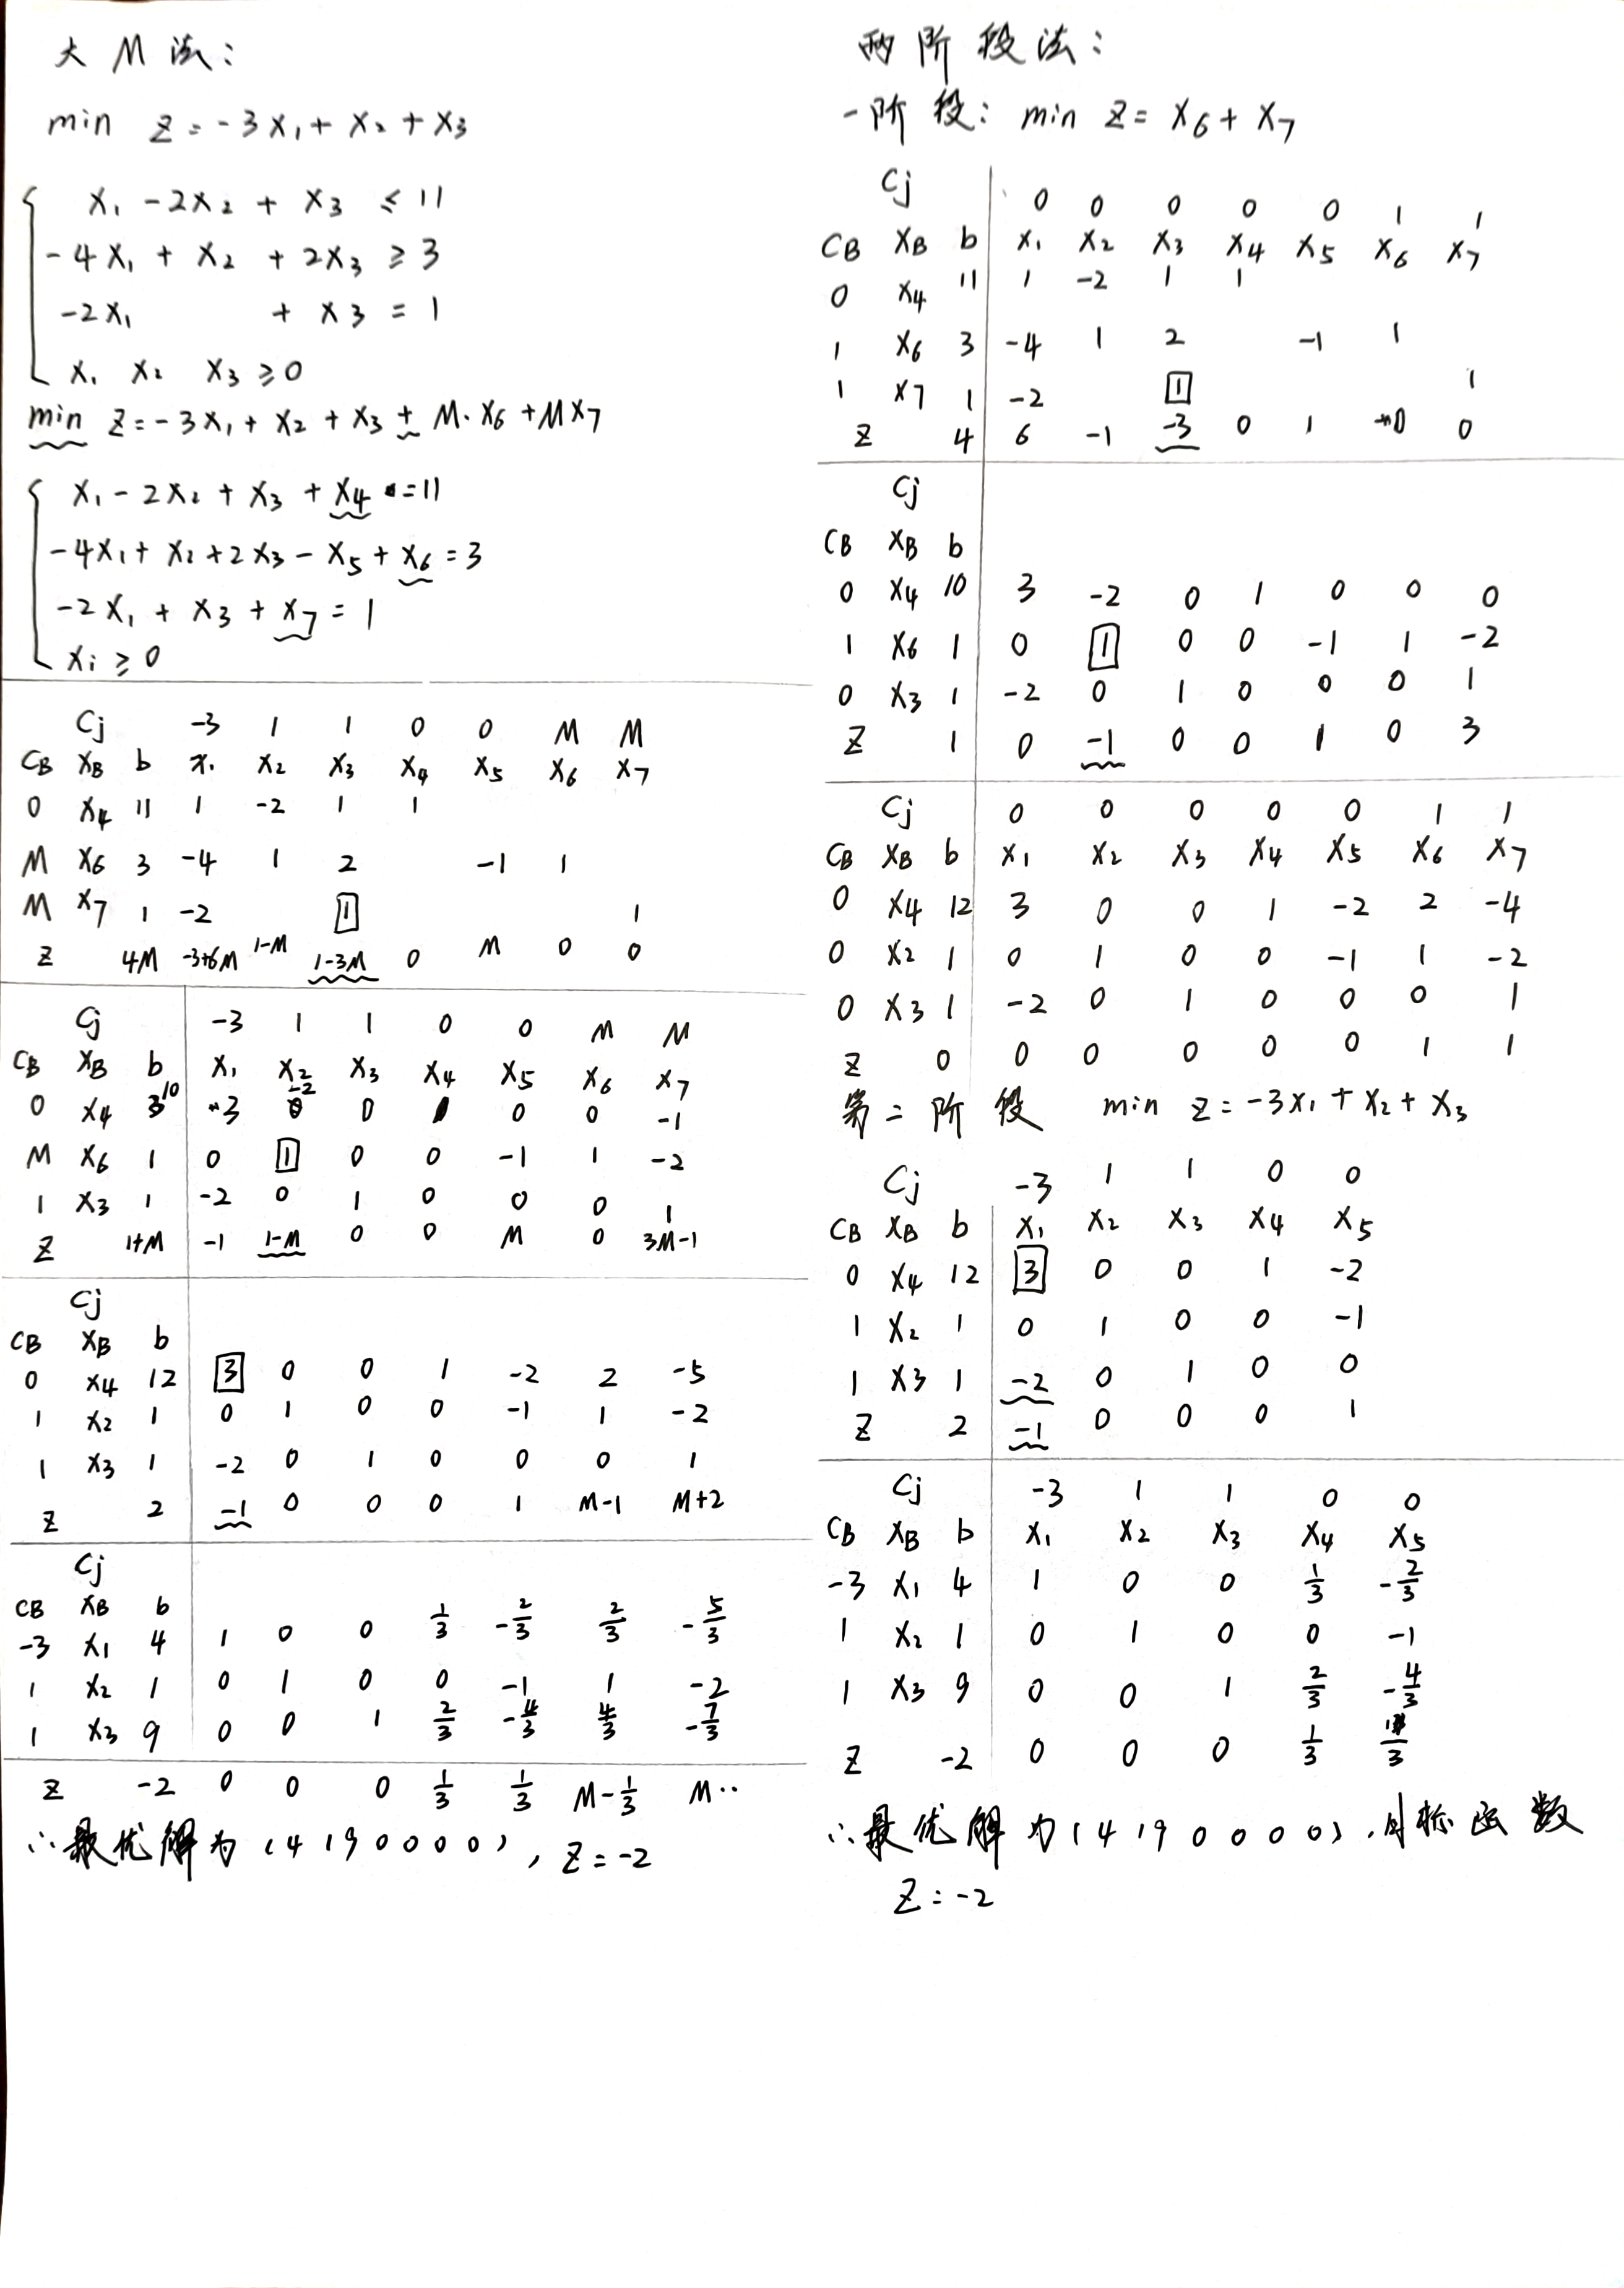 大M法:
min z = -3x₁ + x₂ + x₃
x₁ - 2x₂ + x₃ ≤ 11
-4x₁ + x₂ + 2x₃ ≥ 3
-2x₁ + x₃ = 1
x₁ x₂ x₃ ≥ 0
min z = -3x₁ + x₂ + x₃ + M·x₆ + Mx₇
x₁ - 2x₂ + x₃ + x₄ = 11
-4x₁ + x₂ + 2x₃ - x₅ + x₆ = 3
-2x₁ + x₃ + x₇ = 1
xi ≥ 0
Cj -3 1 1 0 0 M M
CB XB b x₁ x₂ x₃ x₄ x₅ x₆ x₇
0 x₄ 11 1 -2 1 1
M x₆ 3 -4 1 2 -1 1
M x₇ 1 -2 1 1
z 4M -3+6M 1-M 1-3M 0 M 0 0
Cj -3 1 1 0 0 M M
CB XB b x₁ x₂ x₃ x₄ x₅ x₆ x₇
0 x₄ 10 3 -2 0 1 0 0 -1
M x₆ 1 0 1 0 0 -1 1 -2
1 x₃ 1 -2 0 1 0 0 0 1
z 1+M -1 1-M 0 0 M 0 3M-1
Cj
CB XB b
0 x₄ 12 3 0 0 1 -2 2 -5
1 x₂ 1 0 1 0 0 -1 1 -2
1 x₃ 1 -2 0 1 0 0 0 1
z 2 -1 0 0 0 1 M-1 M+2
Cj
CB XB b
-3 x₁ 4 1 0 0 1/3 -2/3 2/3 -5/3
1 x₂ 1 0 1 0 0 -1 1 -2
1 x₃ 9 0 0 1 2/3 -4/3 4/3 -7/3
z -2 0 0 0 1/3 1/3 M-1/3 M··
∴最优解为(4 1 9 0 0 0 0), z = -2
两阶段法:
一阶段: min z = x₆ + x₇
Cj 0 0 0 0 0 1 1
CB XB b x₁ x₂ x₃ x₄ x₅ x₆ x₇
0 x₄ 11 1 -2 1 1
1 x₆ 3 -4 1 2 -1 1
1 x₇ 1 -2 1 1
z 4 6 -1 -3 0 1 0 0
Cj
CB XB b
0 x₄ 10 3 -2 0 1 0 0 0
1 x₆ 1 0 1 0 0 -1 1 -2
0 x₃ 1 -2 0 1 0 0 0 1
z 1 0 -1 0 0 1 0 3
Cj 0 0 0 0 0 1 1
CB XB b x₁ x₂ x₃ x₄ x₅ x₆ x₇
0 x₄ 12 3 0 0 1 -2 2 -4
0 x₂ 1 0 1 0 0 -1 1 -2
0 x₃ 1 -2 0 1 0 0 0 1
z 0 0 0 0 0 0 1 1
第二阶段 min z = -3x₁ + x₂ + x₃
Cj -3 1 1 0 0
CB XB b x₁ x₂ x₃ x₄ x₅
0 x₄ 12 3 0 0 1 -2
1 x₂ 1 0 1 0 0 -1
1 x₃ 1 -2 0 1 0 0
z 2 -1 0 0 0 1
Cj -3 1 1 0 0
CB XB b x₁ x₂ x₃ x₄ x₅
-3 x₁ 4 1 0 0 1/3 -2/3
1 x₂ 1 0 1 0 0 -1
1 x₃ 9 0 0 1 2/3 -4/3
z -2 0 0 0 1/3 1/3
∴最优解为(4 1 9 0 0 0 0),目标函数
z = -2